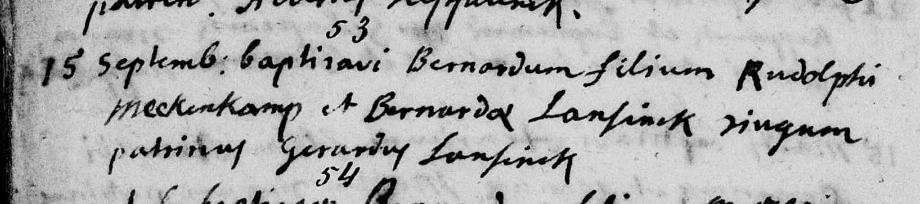 53
15 Septemb: baptisavi Bernardum filium Rudolphi
Meckenkamp et Bernardæ Lansinck iugum
patrinus Gerardus Lansinck
54